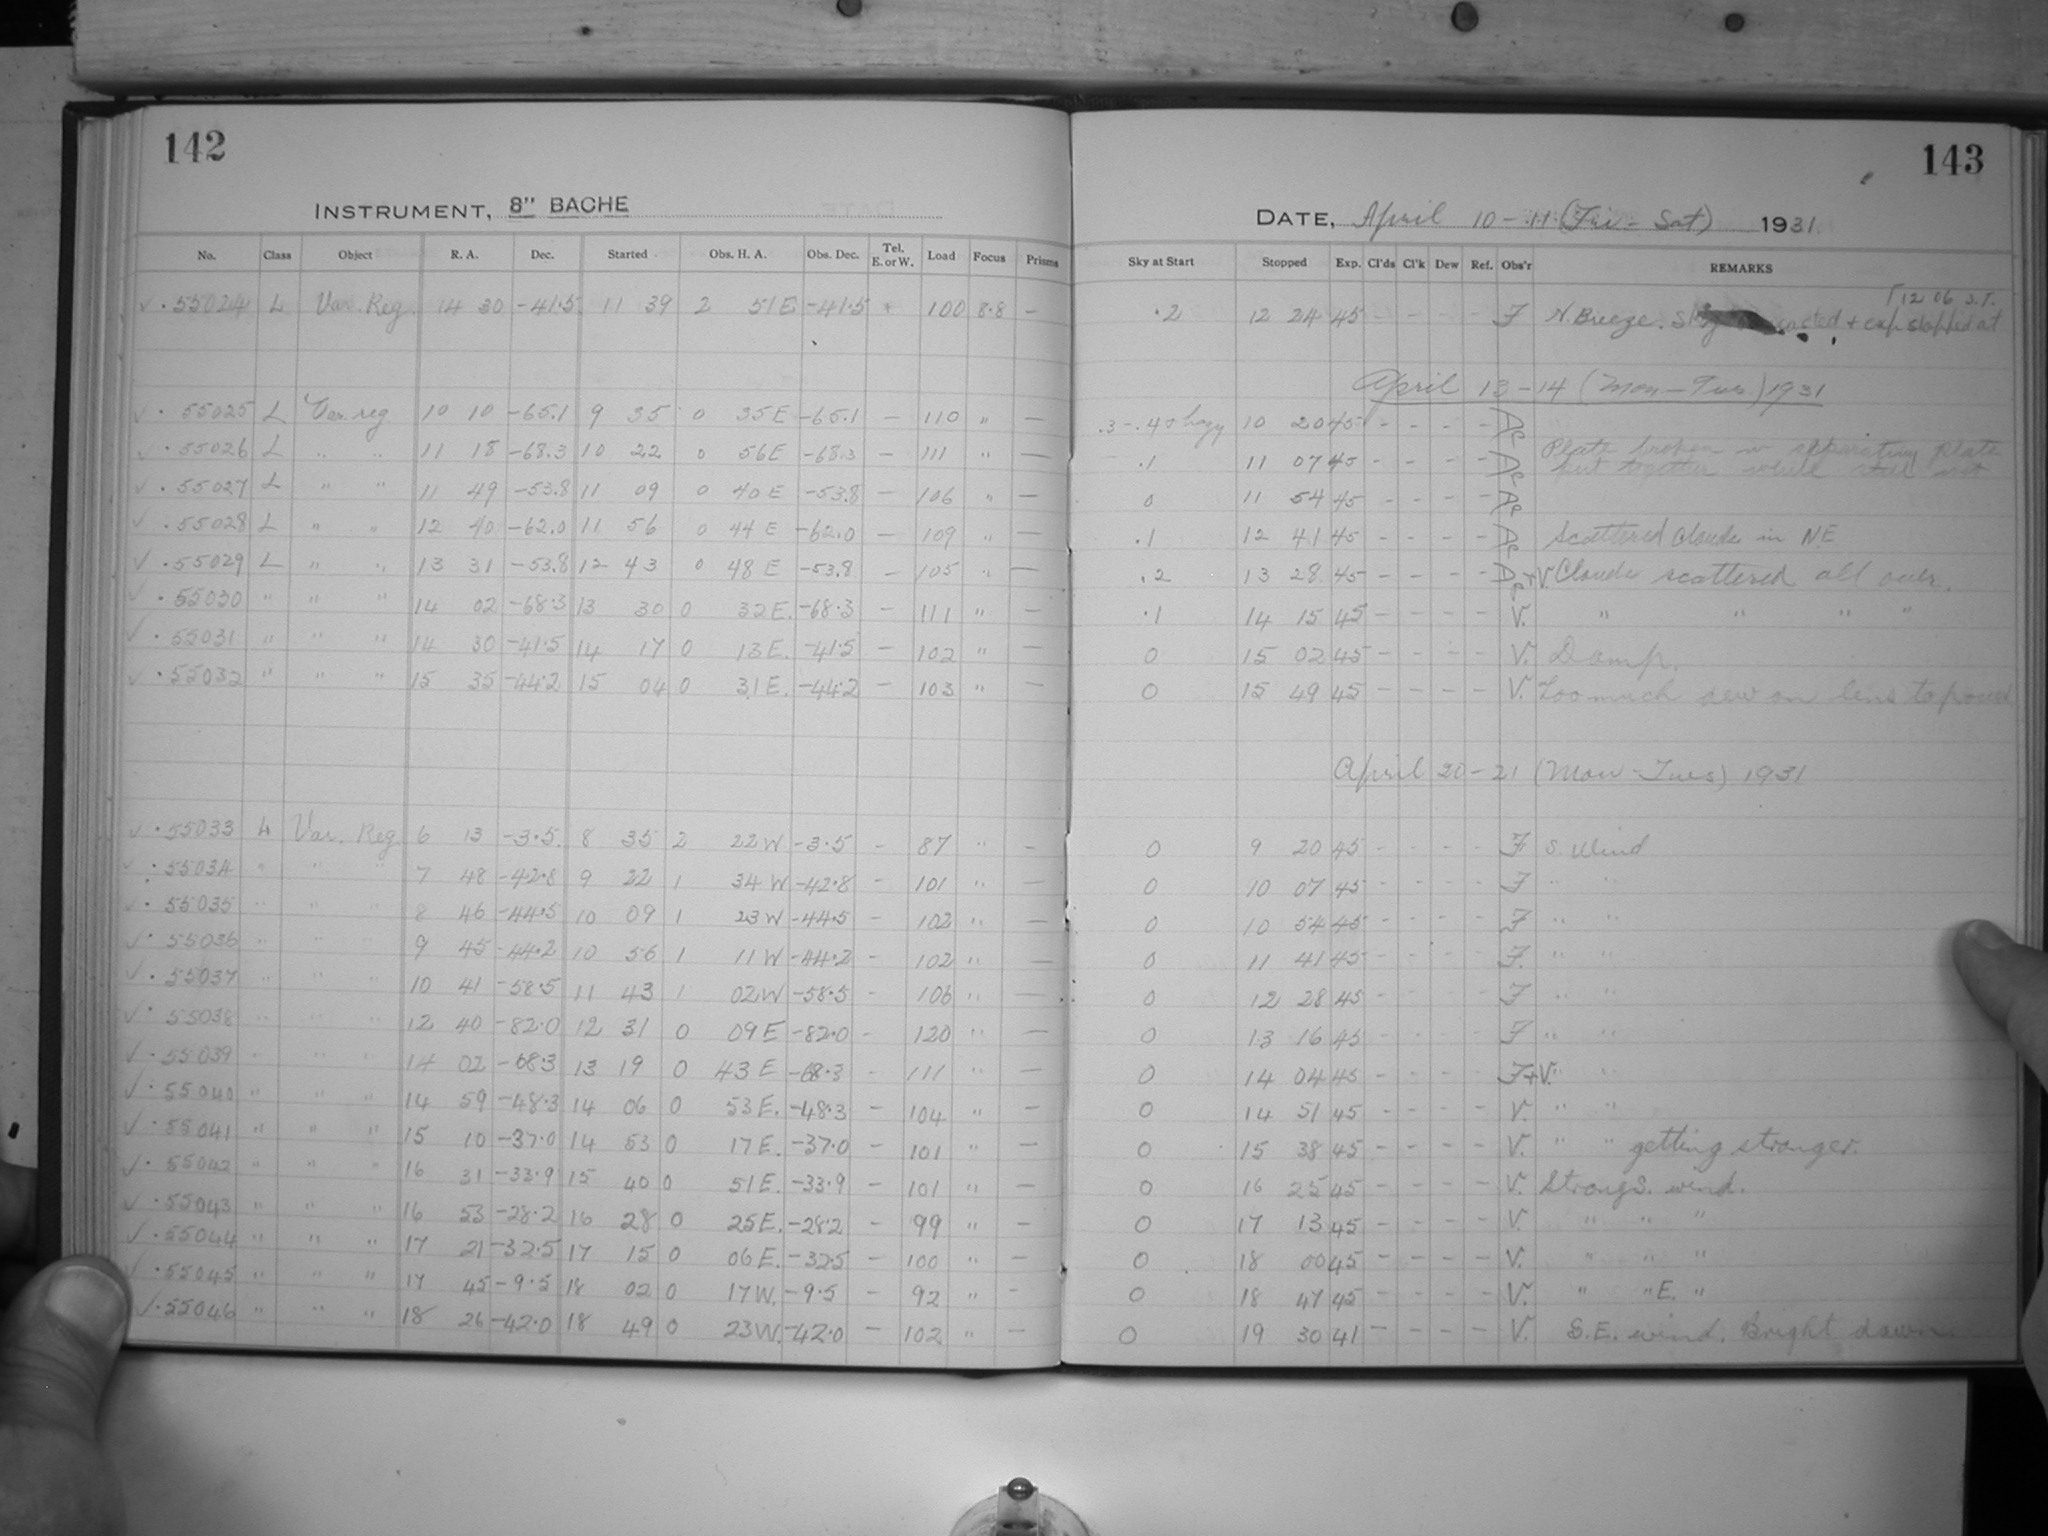 142
143
INSTRUMENT, 8" BACHE
DATE, April 10-11 (Fri - Sat) 1931.
No. Class Object R. A. Dec. Started Obs. H. A. Obs. Dec. Tel. E. or W. Load Focus Prisms Sky at Start Stopped Exp. Cl'ds Cl'k Dew Ref. Obs'r REMARKS
✓ · 55024 L Var. Reg. 14 30 -41.5 11 39 2 51 E -41.5 + 100 8.8 — .2 12 24 45 - - - - F N. Breeze. Sky + exp stopped at 12 06 S.T.
April 13-14 (Mon-Tues) 1931
✓ · 55025 L Var. reg 10 10 -65.1 9 35 0 35 E -65.1 — 110 " — .3-.4 + hazy 10 20 45 - - - -
✓ · 55026 L " " 11 18 -68.3 10 22 0 56 E -68.3 — 111 " — .1 11 07 45 - - - - Plate broken in separating plate put together while still wet
✓ · 55027 L " " 11 49 -53.8 11 09 0 40 E -53.8 — 106 " — 0 11 54 45 - - - -
✓ · 55028 L " " 12 40 -62.0 11 56 0 44 E -62.0 — 109 " — .1 12 41 45 - - - - Scattered Clouds in NE
✓ · 55029 L " " 13 31 -53.8 12 43 0 48 E -53.8 — 105 " — .2 13 28 45 - - - - +V Clouds scattered all over.
✓ · 55030 " " " 14 02 -68.3 13 30 0 32 E. -68.3 — 111 " — .1 14 15 45 - - - - V. " " " "
✓ · 55031 " " " 14 30 -41.5 14 17 0 13 E. -41.5 — 102 " — 0 15 02 45 - - - - V. Damp.
✓ · 55032 " " " 15 35 -44.2 15 04 0 31 E. -44.2 — 103 " — 0 15 49 45 - - - - V. Too much dew on lens to proceed
April 20-21 (Mon-Tues) 1931
✓ · 55033 L Var. Reg. 6 13 -3.5 8 35 2 22 W -3.5 - 87 " — 0 9 20 45 - - - - F S. Wind
✓ · 55034 " " " 7 48 -42.8 9 22 1 34 W -42.8 - 101 " — 0 10 07 45 - - - - F " "
✓ · 55035 " " " 8 46 -44.5 10 09 1 23 W -44.5 - 102 " — 0 10 54 45 - - - - F " "
✓ · 55036 " " " 9 45 -44.2 10 56 1 11 W -44.2 - 102 " — 0 11 41 45 - - - - F. " "
✓ · 55037 " " " 10 41 -58.5 11 43 1 02 W -58.5 - 106 " — 0 12 28 45 - - - - F " "
✓ · 55038 " " " 12 40 -82.0 12 31 0 09 E -82.0 - 120 " — 0 13 16 45 - - - - F " "
✓ · 55039 " " " 14 02 -68.3 13 19 0 43 E -68.3 - 111 " — 0 14 04 45 - - - - F+V. " "
✓ · 55040 " " " 14 59 -48.3 14 06 0 53 E. -48.3 — 104 " — 0 14 51 45 - - - - V. " "
✓ · 55041 " " " 15 10 -37.0 14 53 0 17 E. -37.0 — 101 " — 0 15 38 45 - - - - V. " " getting stronger.
✓ · 55042 " " " 16 31 -33.9 15 40 0 51 E. -33.9 — 101 " — 0 16 25 45 - - - - V. Strong S. wind.
✓ · 55043 " " " 16 53 -28.2 16 28 0 25 E. -28.2 — 99 " — 0 17 13 45 - - - - V. " " "
✓ · 55044 " " " 17 21 -32.5 17 15 0 06 E. -32.5 — 100 " — 0 18 00 45 - - - - V. " " "
✓ · 55045 " " " 17 45 -9.5 18 02 0 17 W. -9.5 — 92 " — 0 18 47 45 - - - - V. " " E. "
✓ · 55046 " " " 18 26 -42.0 18 49 0 23 W. -42.0 — 102 " — 0 19 30 41 - - - - V. S.E. wind. Bright dawn.